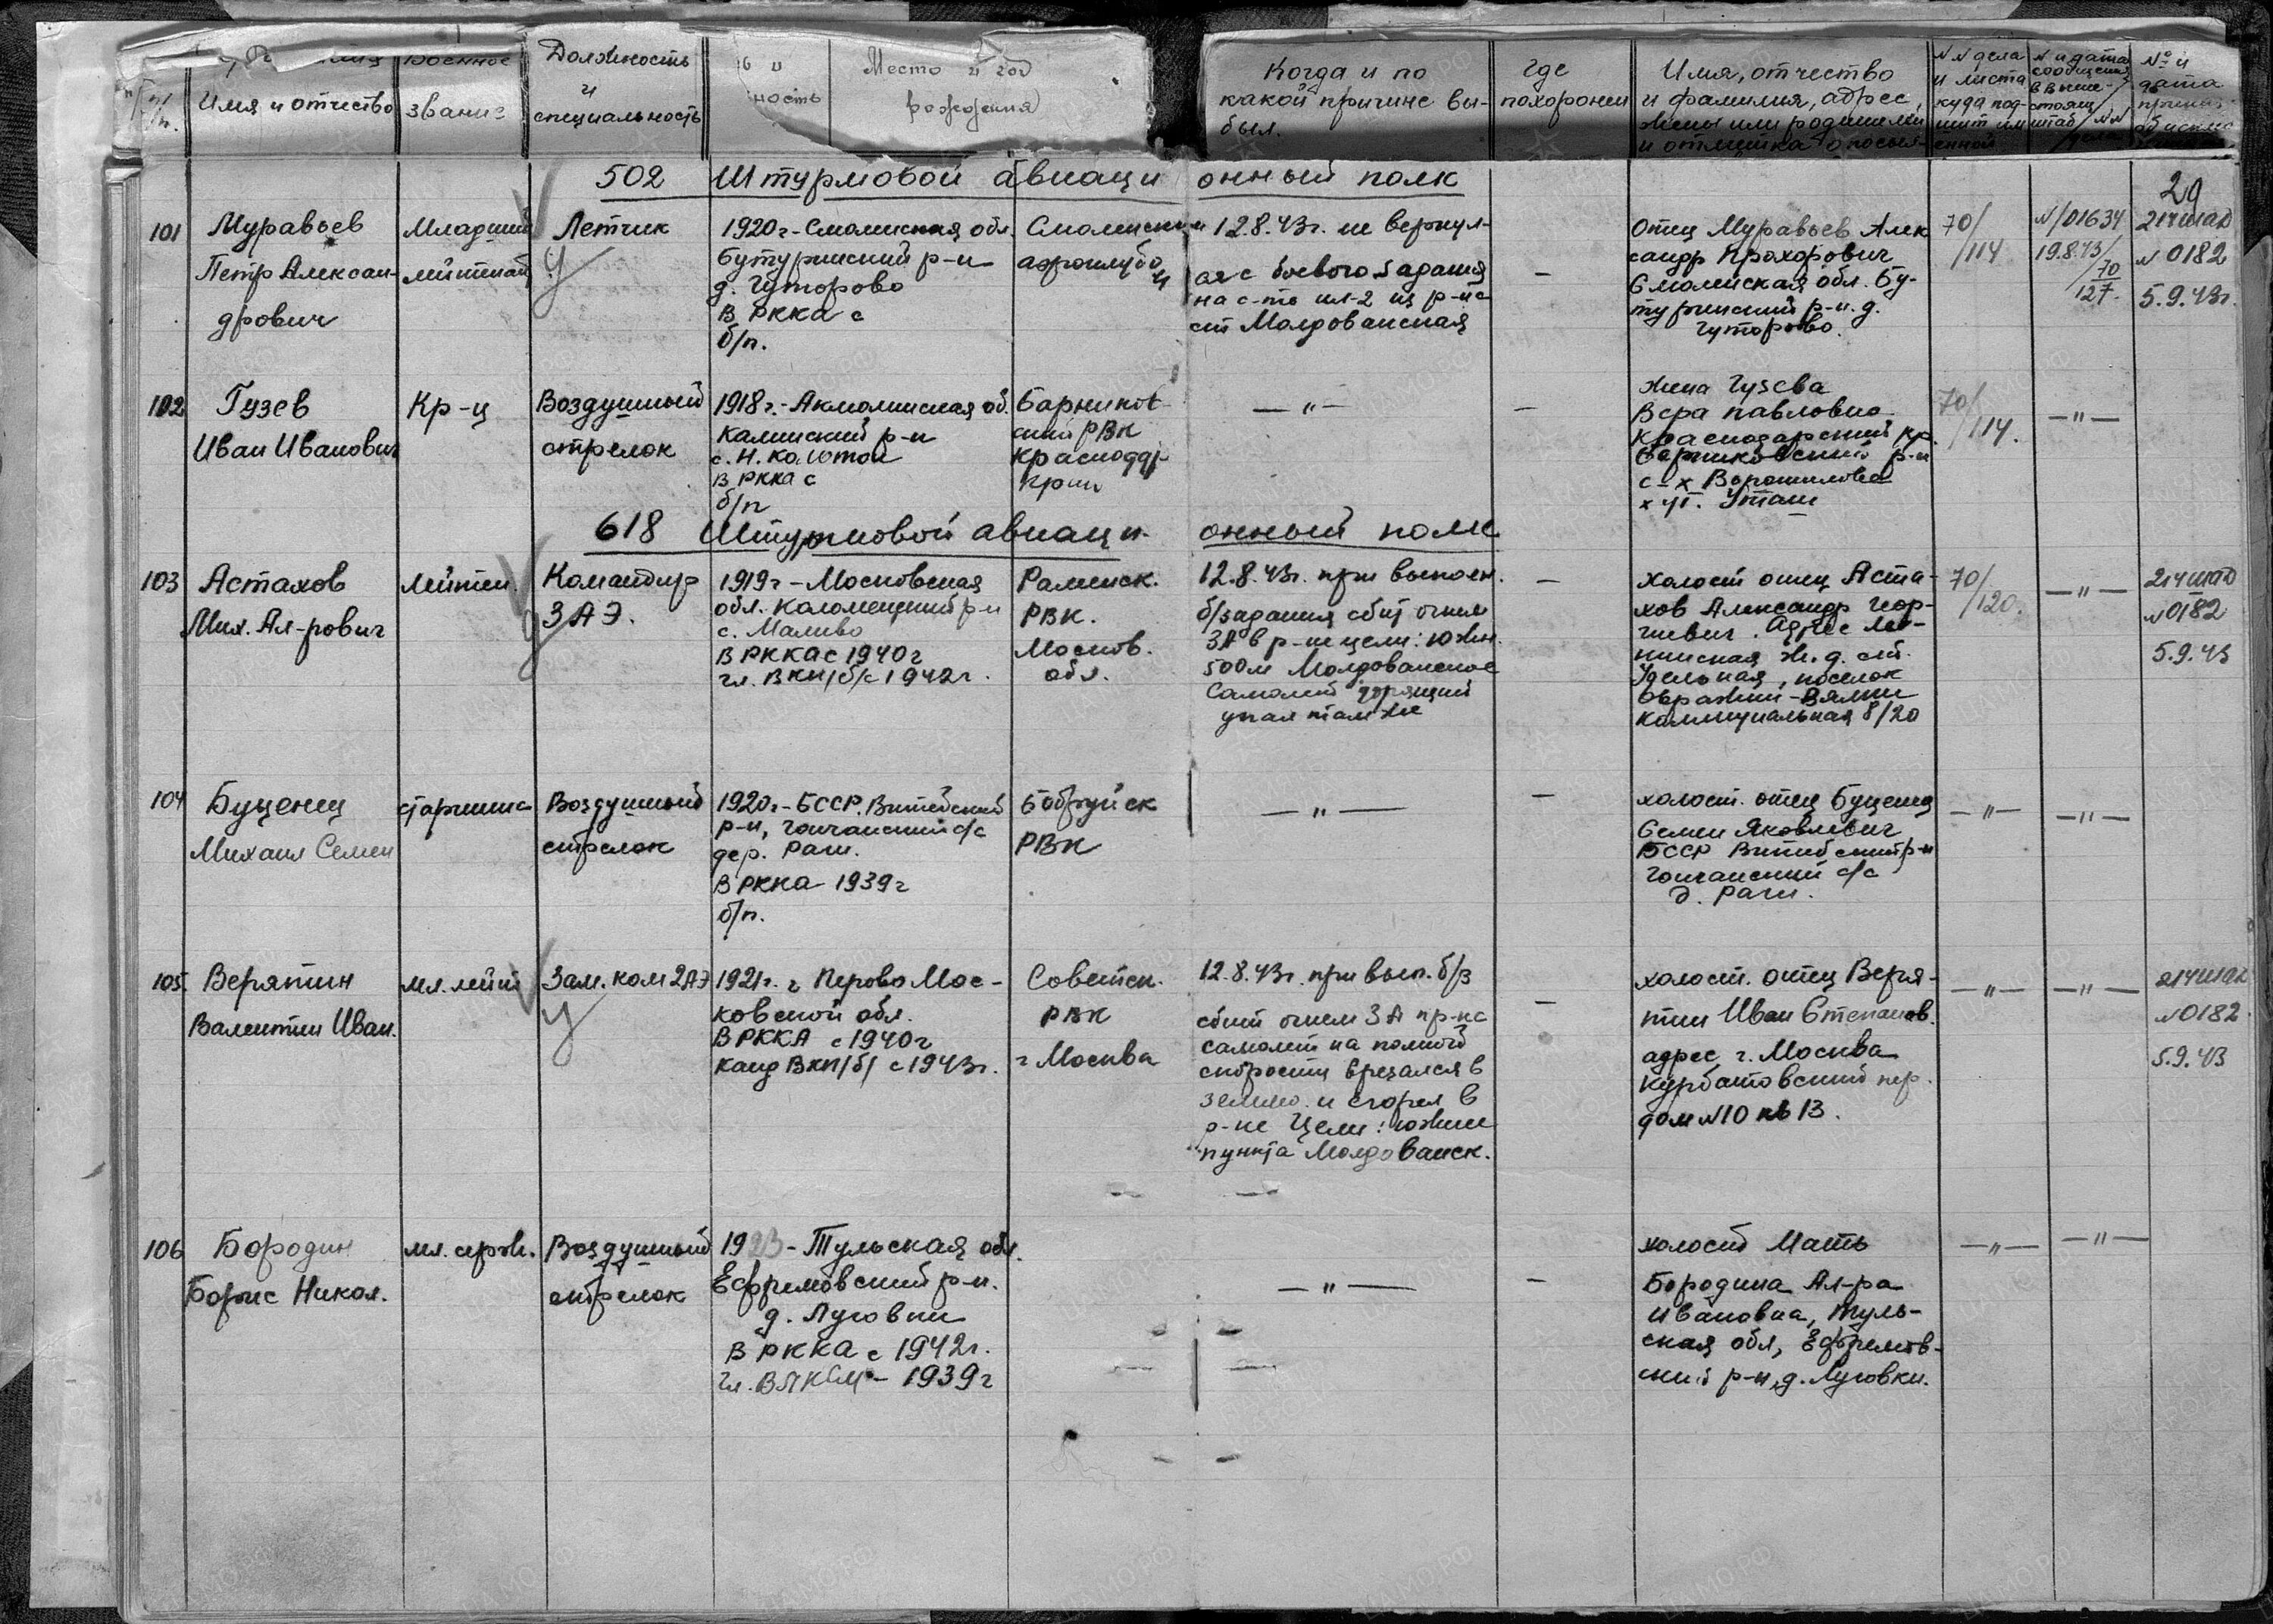 Имя и отчество
Военное
звание
Должность
и
специальность
ность
Место и год
рождения
Когда и по
какой причине вы-
был.
где
похоронен
Имя, отчество
и фамилия, адрес
жены или родителей
и отметка о посыл-
NN дела
и листа
куда под-
шит им
енной
N и дата
сообщения
в выше-
стоящ
штаб
№ и
дата
502 Штурмовой авиаци онный полк
29
101
Муравьев
Петр Алексан-
дрович
Младший
лейтенант
Летчик
1920г-Смоленская обл.
Батуринский р-н
д. Чуторово
В РККА с
б/п.
Смоленский
аэроклуб
12.8.43г. не вернул-
ся с боевого задания
на с-те ил-2 из р-на
ст Молдованская
—
Отец Муравьев Алек
сандр Прохорович
Смоленская обл. Бу-
туринский р-н. д.
Чуторово.
70/
/114
N/01634
19.8.43/
70
127.
214 шад
N 0182
5.9.43г.
102
Гузев
Иван Иванович
Кр-ц
Воздушный
стрелок
1918г.-Акмолинская об.
Калинский р-н
с. Н. Колутон
В РККА с
б/п
Варников
ский РВК
Краснодар
края
—"—
—
жена Гузева
Вера павловна
Краснодарский кр.
Варниковский р-н
с-х Ворошилова
хут. Уташ
70/
/114.
—"—
618 Штурмовой авиаци- онный полк
103
Астахов
Мих. Ал-рович
лейтен.
Командир
3 АЭ.
1919г-Московская
обл. Коломенский р-н
с. Маливо
В РККА с 1940г
чл. ВКП/б/с 1942г.
Раменск.
РВК.
Москов.
обл.
12.8.43г. при выполн.
б/задания сбит огнем
ЗА в р-не цели: южн.
500м Молдованское
Самолет горящий
упал там же
—
Холост отец Аста-
хов Александр Геор-
гиевич. Адрес Ле-
нинская ж.д. ст.
Удельная, поселок
Овражки-Вялки
Коммунальная 8/20
70/
/120.
—"—
214 шад
N0182
5.9.43
104
Буценец
Михаил Семен
старшина
Воздушный
стрелок
1920г-БССР. Витебский
р-н, с/с
дер. Раги.
В РККА-1939г
б/п.
Бобруйск
РВК
—"—
—
холост. отец Буценец
Семен Яковлевич
БССР Витебский р-н
с/с
д. Раги.
—"—
—"—
105.
Верятин
Валентин Иван.
мл. лейт
Зам. ком 2АЭ
1921г. г Перово Мос-
ковской обл.
В РККА с 1940г
канд ВКП/б/ с 1943г.
Советск.
РВК
г Москва
12.8.43г. при вып. б/з
сбит огнем ЗА пр-ка
самолет на полной
скорости врезался в
землю и сгорел в
р-не Цели: южнее
пункта Молдованск.
—
холост. отец Веря-
тин Иван Степанов.
адрес г. Москва
Курбатовский пер.
дом N10 кв 13.
—"—
—"—
214 шад
N0182
5.9.43
106
Бородин
Борис Никол.
мл. серж.
Воздушный
стрелок
1923-Тульская обл.
Ефремовский р-н.
д. Луговки
В РККА с 1942г.
чл. ВЛКСМ-1939г
—"—
—
холост Мать
Бородина Ал-ра
Ивановна, Туль-
ская обл, Ефремов-
ский р-н, д. Луговки.
—"—
—"—